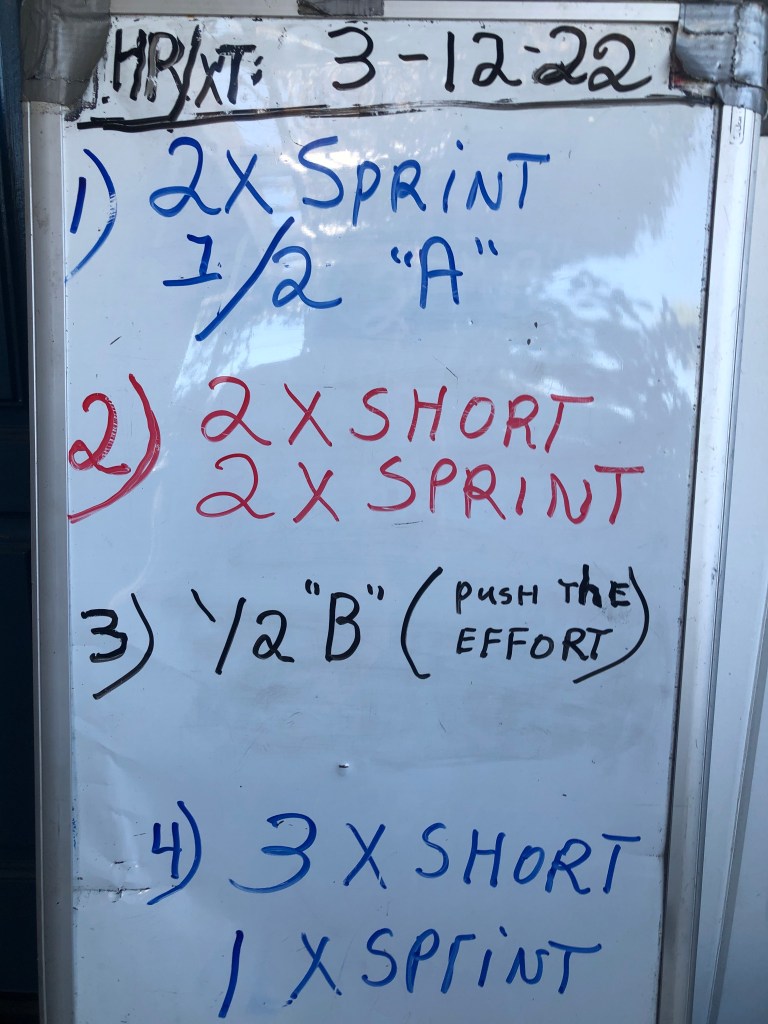 HR/XT: 3-12-22
1) 2X SPRiNT
1/2 "A"
2) 2 X SHORT
2 X SPRINT
3) 1/2 "B" (PUSH ThE
EFFORT)
4) 3 X SHORT
1 X SPriNT